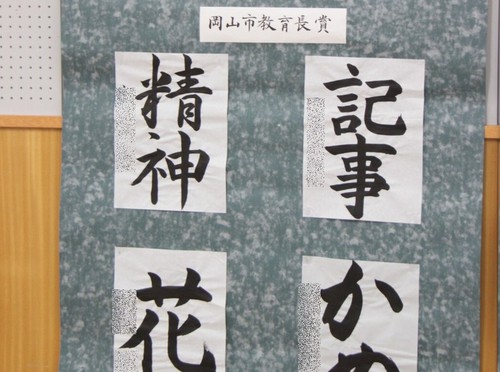 岡山市教育長賞
記事
精神
か
花